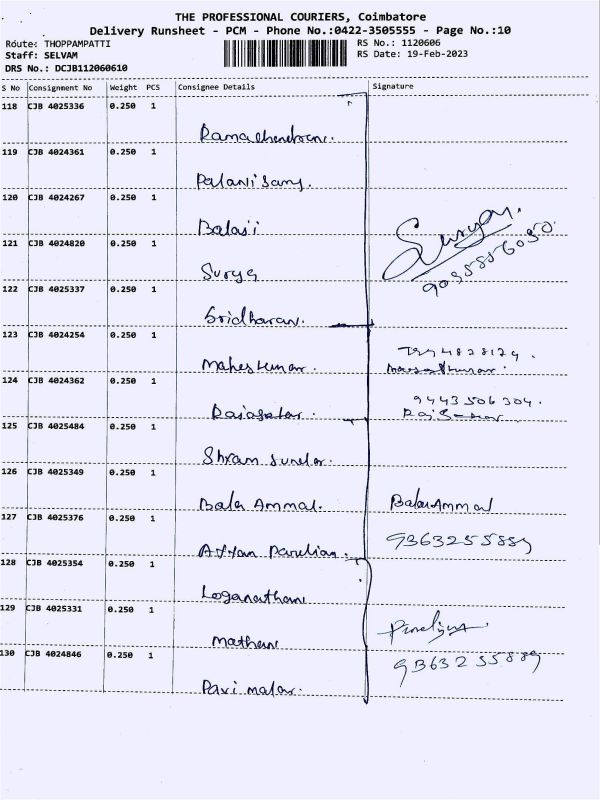 THE PROFESSIONAL COURIERS, Coimbatore
Delivery Runsheet - PCM - Phone No.:0422-3505555 - Page No.:10
Route: THOPPAMPATTI
RS No.: 1120606
Staff: SELVAM
RS Date: 19-Feb-2023
DRS No.: DCJB112060610
S No Consignment No Weight PCS Consignee Details Signature
118 CJB 4025336 0.250 1
Ramachendran.
119 CJB 4024361 0.250 1
Palanisamy.
120 CJB 4024267 0.250 1
Balaji
Surya.
121 CJB 4024820 0.250 1
Surya
122 CJB 4025337 0.250 1
Sridharan.
123 CJB 4024254 0.250 1
Maheskumar.
124 CJB 4024362 0.250 1
9443506304.
Rajasekar.
125 CJB 4025484 0.250 1
Shyam Sundar.
126 CJB 4025349 0.250 1
Bala Ammal. Bala Ammal
127 CJB 4025376 0.250 1
9363255889
128 CJB 4025354 0.250 1
Loganathan
129 CJB 4025331 0.250 1
Mathan
130 CJB 4024846 0.250 1
9363255889
Pavi malar.